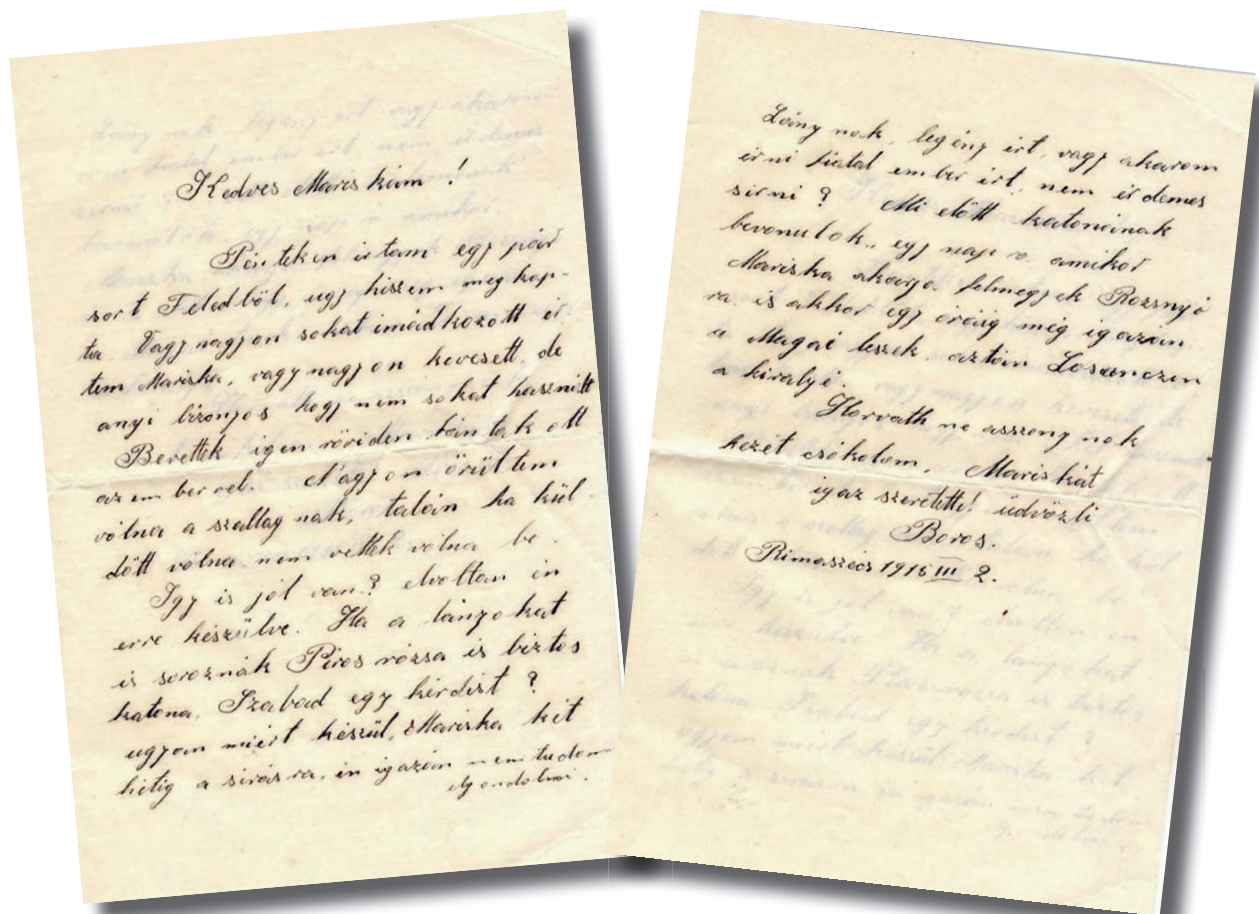 Kedves Mariskám!
Pénteken irtam egy pár
sort Feledböl, ugy hiszem megkap-
ta. Vagy nagyon sokat imádkozott ér
tem Mariska, vagy nagyon kevesett, de
anyi bizonyos hogy nem sokat használt
Bevettek igen röviden bántak ott
az emberrel. Nagyon örültem
volna a szallagnak, talán ha kül
dött volna nem vettek volna be.
Igy is jól van? elvoltam én
erre készülve. Ha a lányokat
is soroznák Piros rózsa is biztos
katona. Szabad egy kérdést?
ugyan miért készül, Mariska két
hétig a sirásra, én igazán nem tudom
elgondolni.
Lány nak, legény ért, vagy akarom
irni fiatal ember ért, nem érdemes
sirni? Mi elött katonának
bevonulok, egy nap a amikor
Mariska akarja felmegyek Rozsnyó
ra, és akkor egy óráig még igazán
a Magáé leszek aztán Losonczon
a királyé.
Horváth né asszony nak
kezét csókolom, Mariskát
igaz szeretettel üdvözli
Boros.
Rimaszécs 1915 III 2.